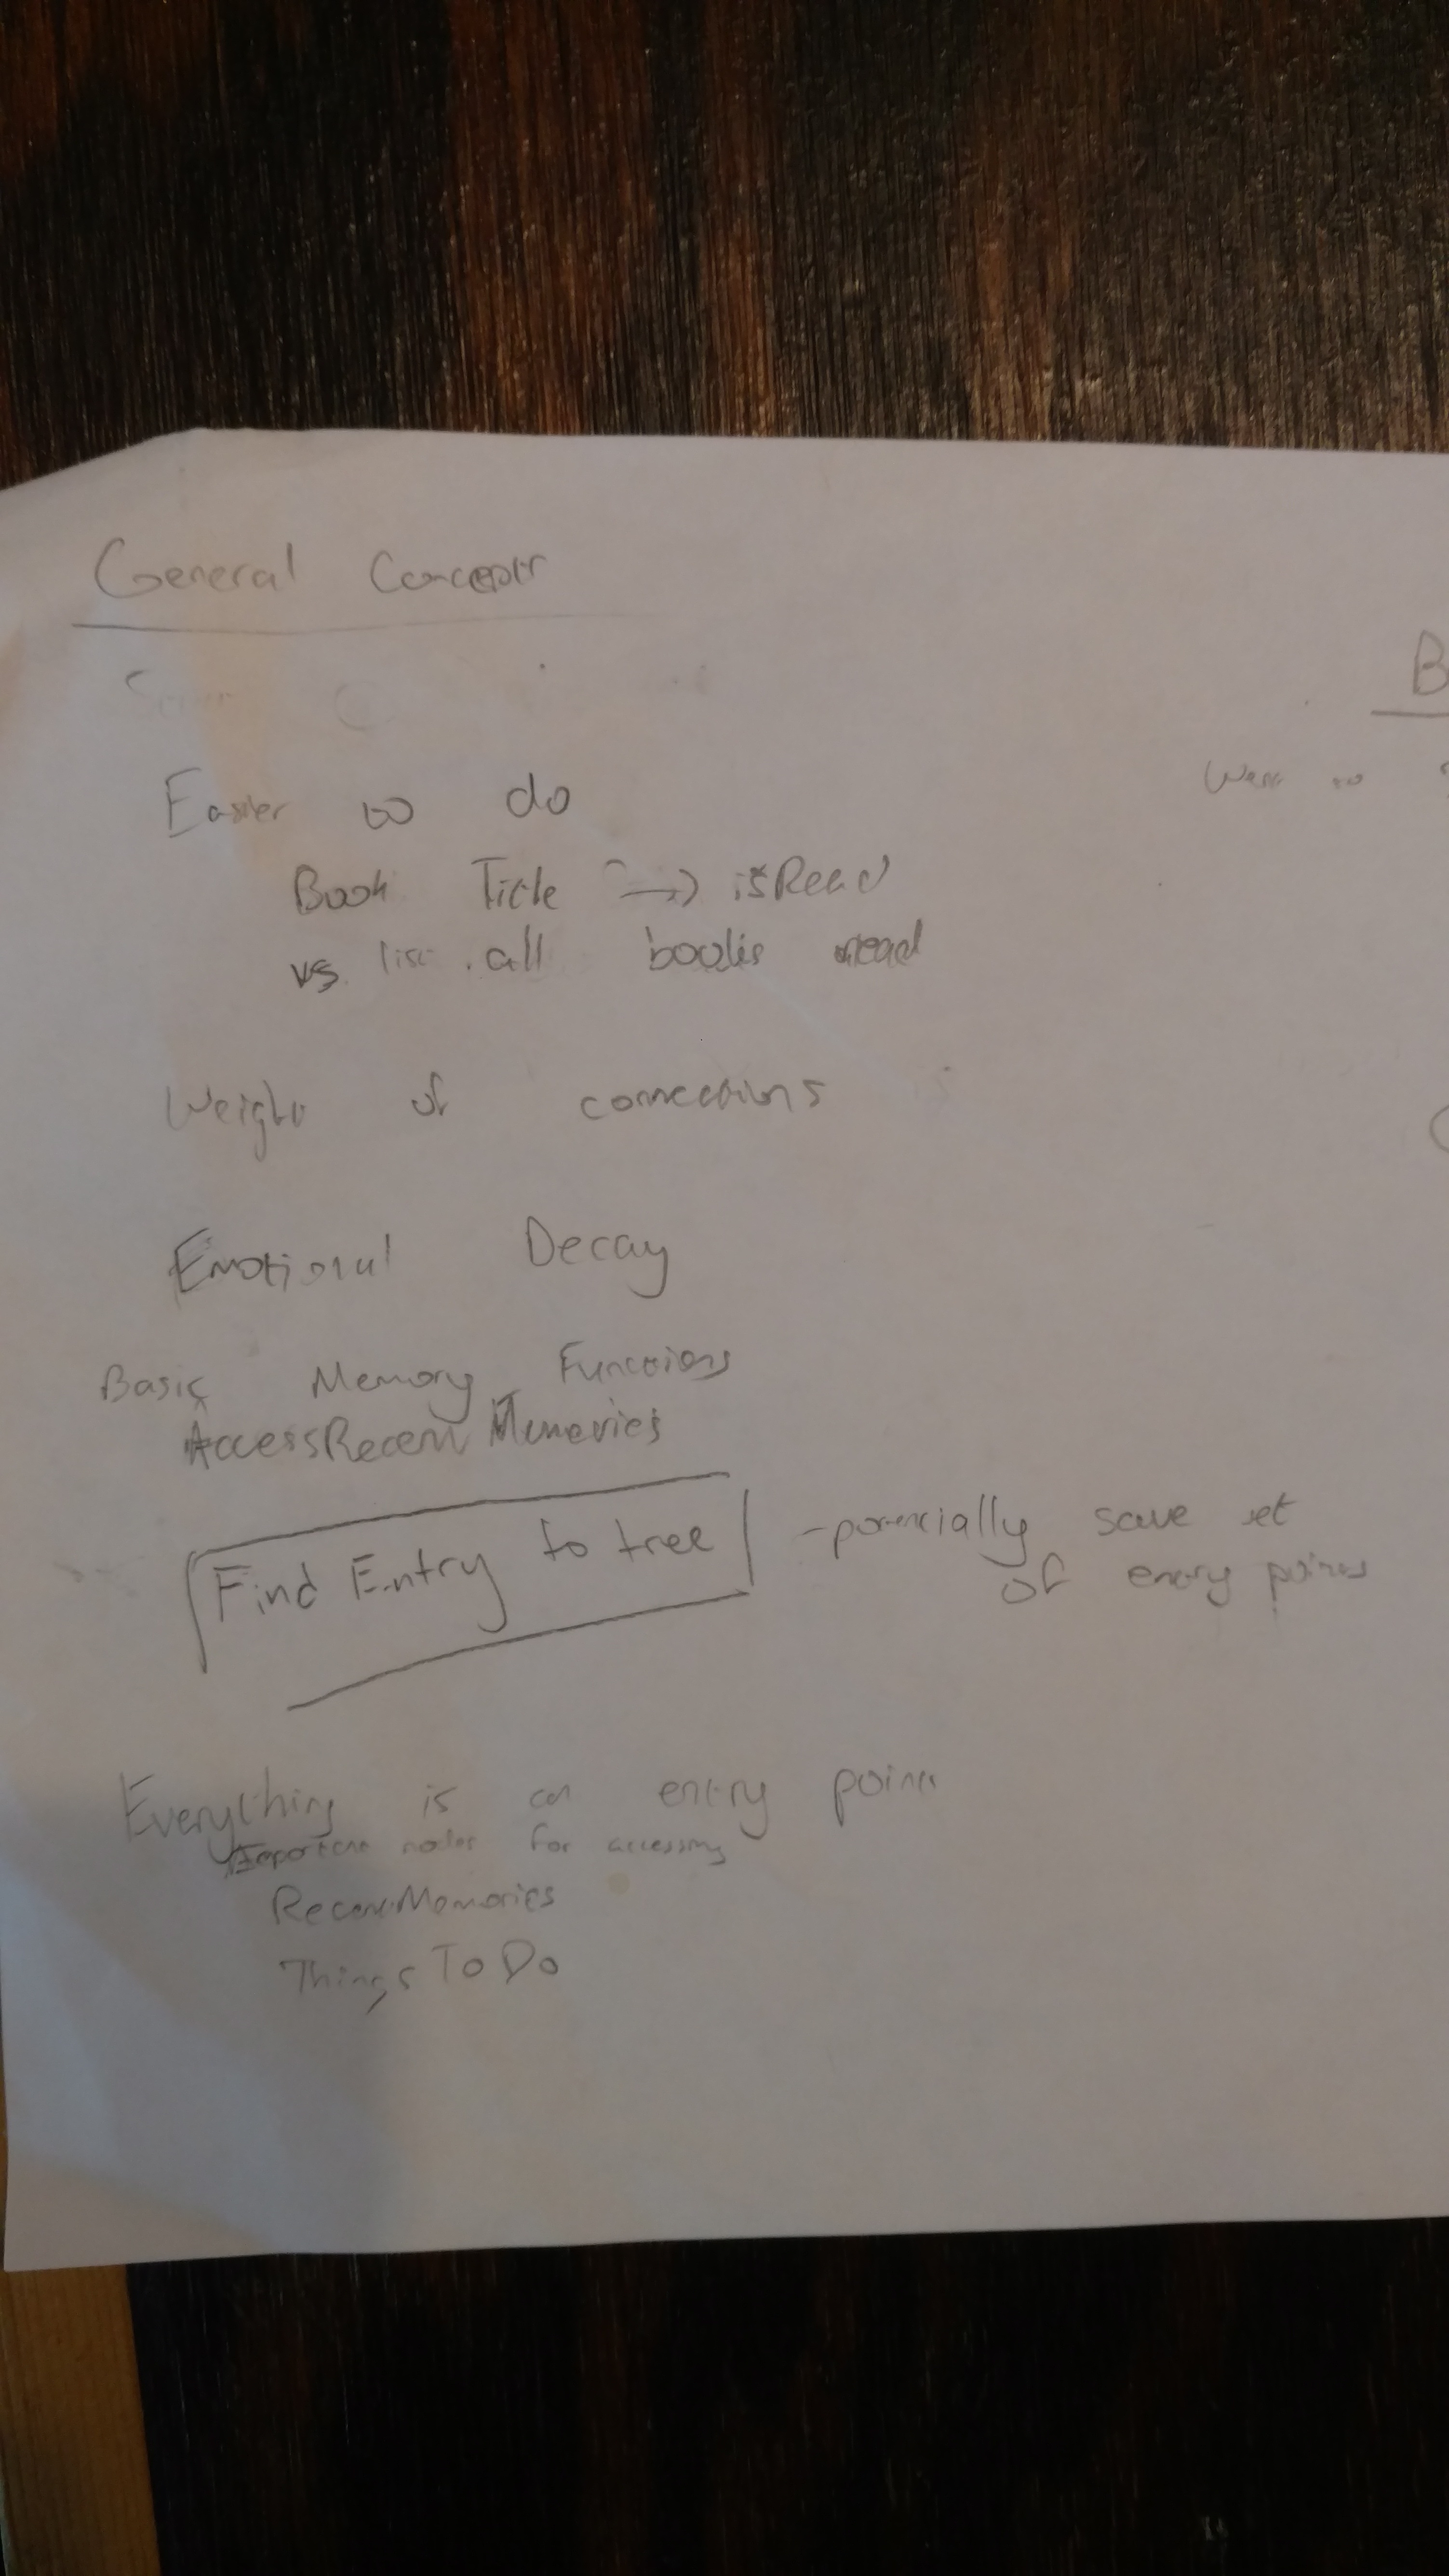 General Concepts
Easier to do
Book Title → isRead
vs list all books read
Weight of connections
Emotional Decay
Basic Memory Functions
AccessRecentMemories
Find Entry to tree
- potencially save set
of entry points
Everything is an entry point
Important nodes for accessing
RecentMemories
ThingsToDo
B